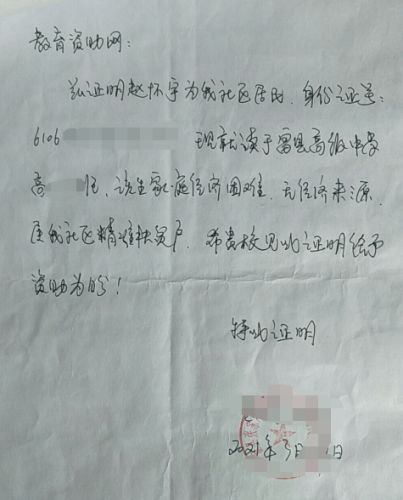 教育资助网：
兹证明赵怀宇为我社区居民，身份证号：
6106 现就读于富县高级中学
高 班，该生家庭经济困难，无经济来源，
属我社区精准扶贫户，希贵校见此证明给予
资助为盼！
特此证明
2021年3日 日